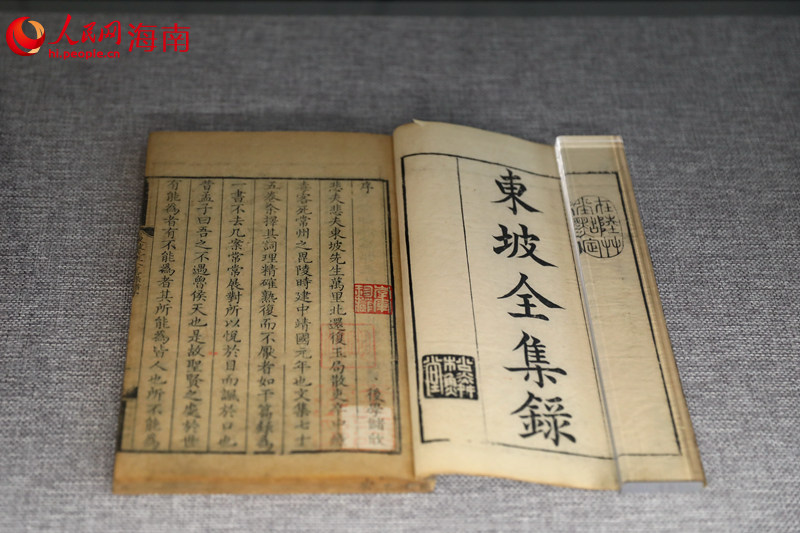 人民网 海南
hi.people.cn
東坡全集錄
序
後學儲欣
悲夫悲夫東坡先生萬里北還復玉局散吏中瘴
毒客死常州之毘陵時建中靖國元年也文集七十
五卷余擇其詞理精確熟復而不厭者如干篇錄爲
一書不去几案常常展對所以悅於目而諷於口也
昔孟子曰吾之不遇魯侯天也是故聖賢之處於世
有能爲者有不能爲者其所能爲皆人也所不能爲